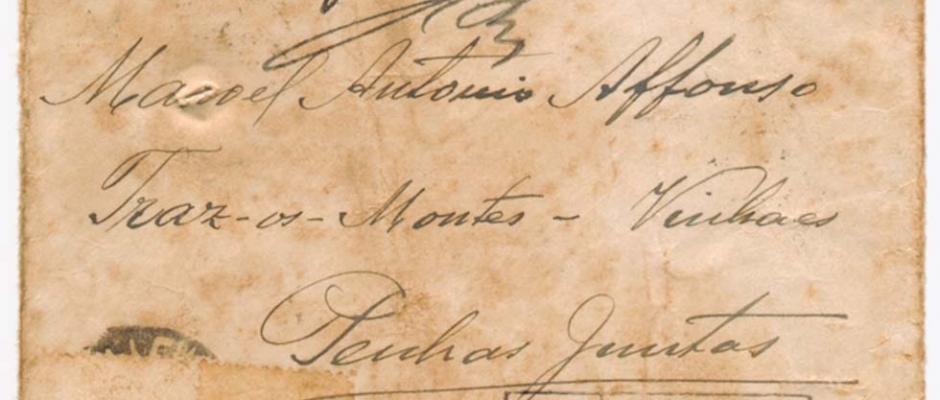 Manoel Antonio Affonso
Traz-os-Montes - Vinhaes
Penhas Juntas